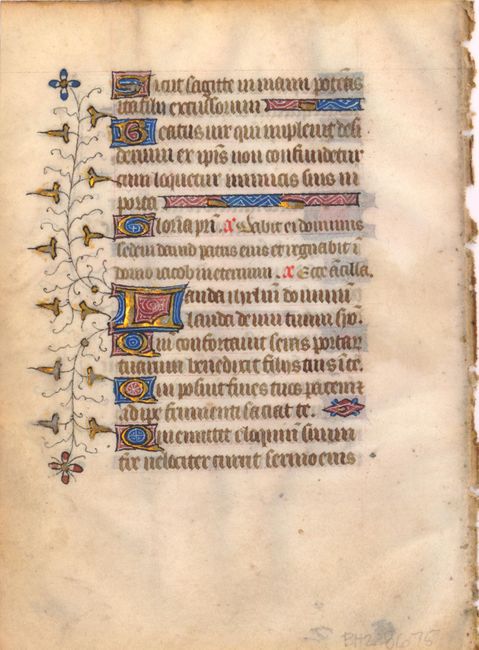 Sicut sagitte in manu potētis
ita filii excussorum
Beatus uir qui impleuit desi
derium ex ipīs non confundetur
cum loquetur inimicis suis in
porta
Gloria pri. a Dabit ei dominus
sedem dauid patris eius et regnabit ī
domo iacob in eternum. a Ecce ācilla.
Lauda ihrlm dominū
lauda deum tuum syo.
Qm̄ confortauit seras portar
tuarum benedixit filiis tuis ī te.
Qui posuit fines tuos pacem z
adipe frumenti saciat te.
Qui emittit eloquiū suum
tre uelociter currit sermo eius